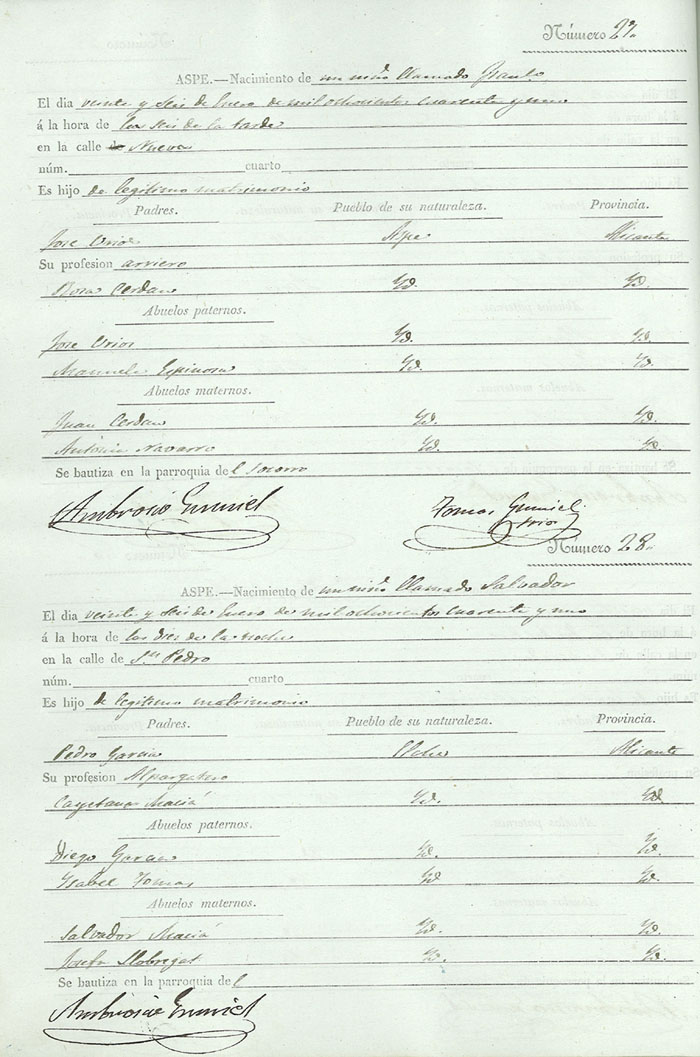 Número 27.
ASPE.—Nacimiento de un niño llamado
El día veinte y seis de Enero de mil ochocientos cuarenta y uno
á la hora de las seis de la tarde
en la calle de Nueva
núm. cuarto
Es hijo de legitimo matrimonio
Padres. Pueblo de su naturaleza. Provincia.
Jose Urios Aspe Alicante
Su profesion arriero
Rosa Cerdan Yd. Yd.
Abuelos paternos.
Jose Urios Yd. Yd.
Manuela Espinosa Yd. Yd.
Abuelos maternos.
Juan Cerdan Yd. Yd.
Antonia Navarro Yd. Yd.
Se bautiza en la parroquia del Socorro
Ambrosio Tomas
Número 28.
ASPE.—Nacimiento de un niño llamado Salvador
El día veinte y seis de Enero de mil ochocientos cuarenta y uno
á la hora de las de la noche
en la calle de Sn. Pedro
núm. cuarto
Es hijo de legitimo matrimonio
Padres. Pueblo de su naturaleza. Provincia.
Pedro Garcia Elche Alicante
Su profesion Alpargatero
Cayetana Maciá Yd. Yd.
Abuelos paternos.
Diego Garcia Yd. Yd.
Ysabel Tomas Yd. Yd.
Abuelos maternos.
Salvador Maciá Yd. Yd.
Josefa Llobregat Yd. Yd.
Se bautiza en la parroquia del
Ambrosio